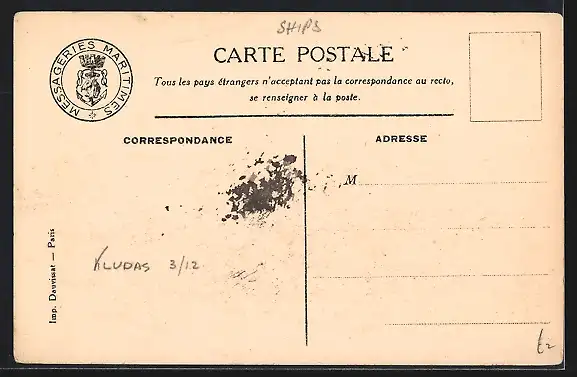 SHIPS
MESSAGERIES MARITIMES
CARTE POSTALE
Tous les pays étrangers n'acceptant pas la correspondance au recto,
se renseigner à la poste.
CORRESPONDANCE
ADRESSE
M
KLUDAS 3/12
Imp. Dauvissat — Paris